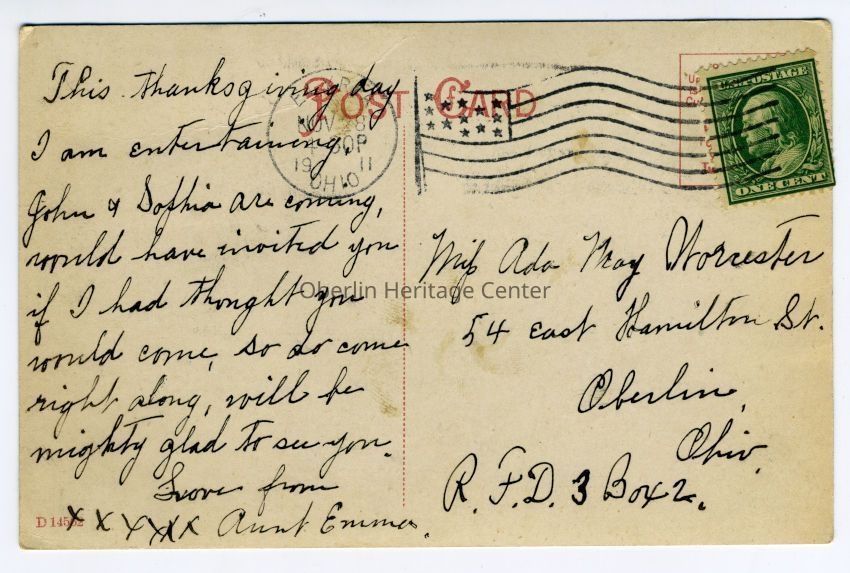 This thanksgiving day
I am entertaining,
John & Sophia are coming,
would have invited you
if I had thought you
would come, so do come
right along, will be
mighty glad to see you.
Love from
x x x x x x Aunt Emma.
D 14562
POST CARD
NOV 8
30P
19 11
OHIO
U.S. POSTAGE
ONE CENT
Miss Ada May Worcester
54 east Hamilton St.
Oberlin,
Ohio.
R. F. D. 3 Box 2.
Oberlin Heritage Center